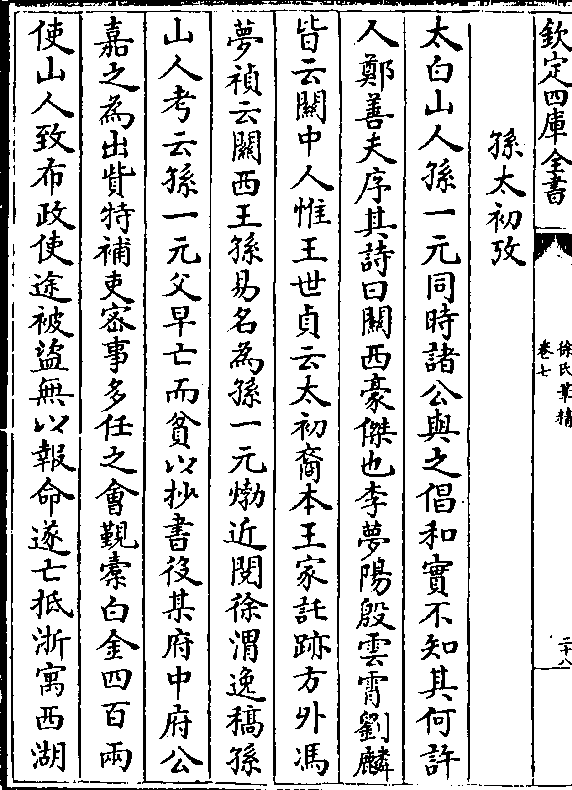 欽定四庫全書
徐氏筆精
卷七
二十八
孫太初攷
太白山人孫一元同時諸公與之倡和實不知其何許
人鄭善夫序其詩曰關西豪傑也李夢陽殷雲霄劉麟
皆云關中人惟王世貞云太初裔本王家託跡方外馮
夢禎云關西王孫易名為孫一元㷀近閱徐渭逸稿孫
山人考云孫一元父早亡而貧以抄書役某府中府公
嘉之為出貲特補吏密事多任之會覲槖白金四百兩
使山人致布政使途被盜無以報命遂亡抵浙寓西湖